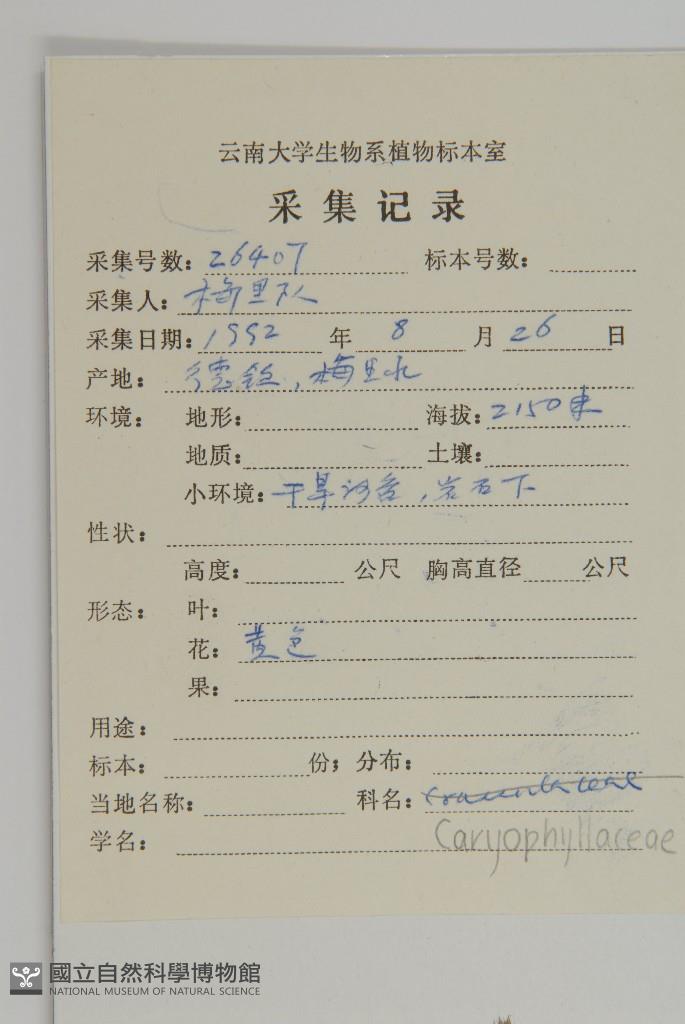 云南大学生物系植物标本室
采集记录
采集号数: 26407 标本号数:
采集人: 梅里队
采集日期: 1992 年 8 月 26 日
产地: 德钦, 梅里水
环境: 地形: 海拔: 2150米
地质: 土壤:
小环境: 干旱河谷, 岩石下
性状:
高度: 公尺 胸高直径 公尺
形态: 叶:
花: 黄色
果:
用途:
标本: 份; 分布:
当地名称: 科名:
学名: Caryophyllaceae
國立自然科學博物館
NATIONAL MUSEUM OF NATURAL SCIENCE